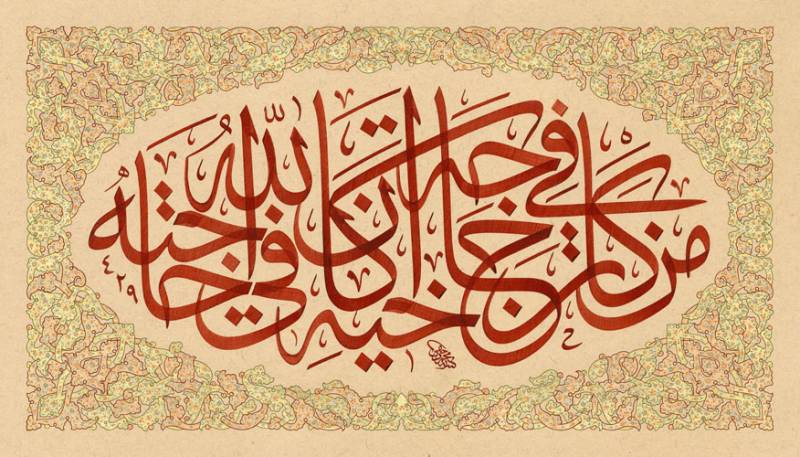 من كان في حاجة اخيه كان الله في حاجته
٤٢٩